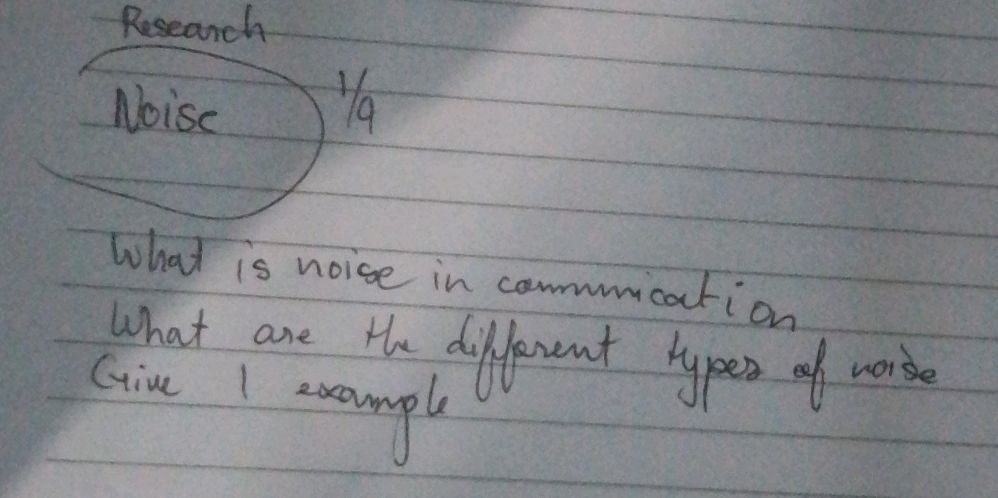 Research
Noise 1/9
What is noise in communication
What are the different types of noise
Give 1 example